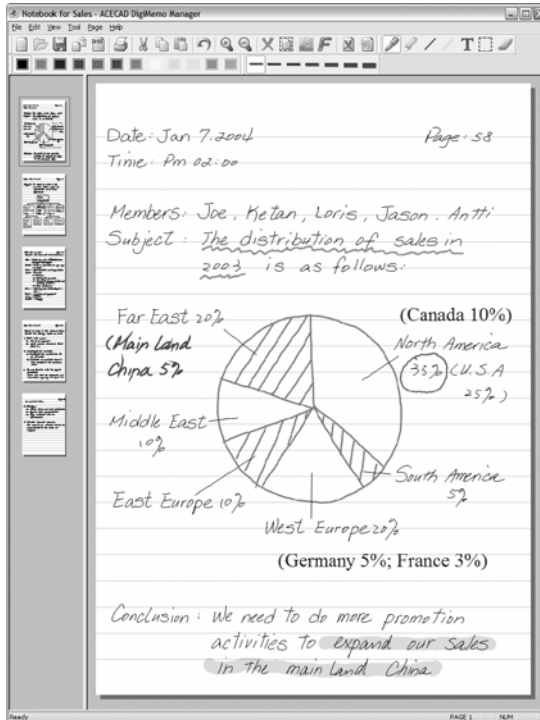 Notebook for Sales - ACECAD DigiMemo Manager
File Edit View Tool Page Help
Date: Jan 7.2004 Page: 58
Time: Pm 02:00
Members: Joe, Ketan, Loris, Jason, Antti
Subject: The distribution of sales in
2003 is as follows:
Far East 20%
(Main Land
China 5%
(Canada 10%)
North America
35% (U.S.A
25%)
Middle East
10%
South America
5%
East Europe 10%
West Europe 20%
(Germany 5%; France 3%)
Conclusion: We need to do more promotion
activities to expand our sales
in the main Land China
Ready PAGE 1 NUM